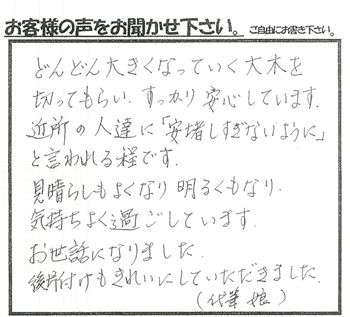 お客様の声をお聞かせ下さい。ご自由にお書き下さい。
どんどん大きくなっていく大木を
切ってもらい、すっかり安心しています。
近所の人達に「安堵しすぎないように」
と言われる程です。
見晴らしもよくなり明るくもなり、
気持ちよく過ごしています。
お世話になりました。
後片付けもきれいにしていただきました。
(代筆 娘)